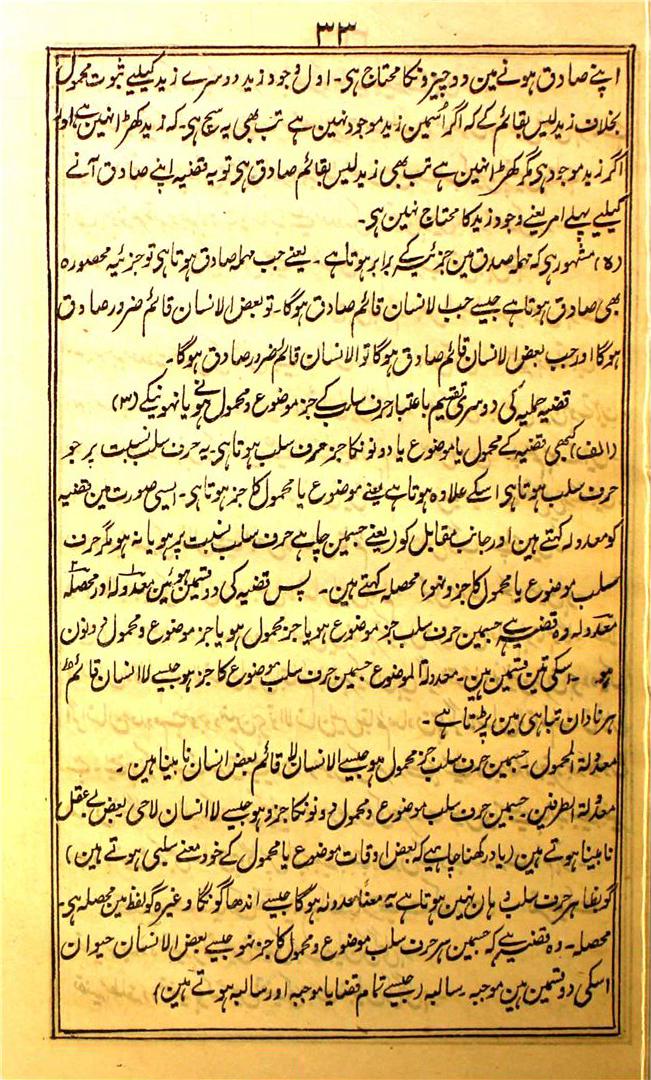 ۳۳
اپنے صادق ہونے مین دو چیزونکا محتاج ہی۔ اول وجود زید دوسرے زید کیلیے ثبوت محمول
بخلاف زید لیس بقائم کے کہ اگر اسمین زید موجود نہین ہے تب بھی یہ سچ ہی۔ کہ زید کھڑا نہین ہے اور
اگر زید موجود ہی مگر کھڑا نہین ہے تب بھی زید لیس بقائم صادق ہی تو یہ قضیہ اپنے صادق آنے
کیلیے پہلے امر یعنے وجود زید کا محتاج نہین ہی۔
(ہ) مشہور ہی کہ مہملہ صدق مین جزئیہ کے برابر ہوتا ہے۔ یعنے جب مہملہ صادق ہوتا ہی تو جزئیہ محصورہ
بھی صادق ہوتا ہے جیسے جب الانسان قائم صادق ہوگا۔ تو بعض الانسان قائم ضرور صادق
ہوگا اور جب بعض الانسان قائم صادق ہوگا تو الانسان قائم ضرور صادق ہوگا۔
قضیہ حملیہ کی دوسری تقسیم باعتبار حرف سلب کے جز موضوع و محمول ہونے یا نہونیکے (۳)
(الف) کبھی قضیہ کے محمول یا موضوع یا دونونکا جز حرف سلب ہوتا ہی۔ یہ حرف سلب نسبت پر جو
حرف سلب ہوتا ہی اسکے علاوہ ہوتا ہے یعنے موضوع یا محمول کا جز ہوتا ہی۔ ایسی صورت مین قضیہ
کو معدولہ کہتے ہین اور جانب مقابل کو (یعنے جسمین چاہے حرف سلب نسبت پر ہو یا نہ ہو مگر حرف
سلب موضوع یا محمول کا جزو نہو) محصلہ کہتے ہین۔ پس قضیہ کی دو قسمین ہوئین معدولہ اور محصلہ
معدولہ وہ قضیہ ہے جسمین حرف سلب جز موضوع ہو یا جز محمول ہو یا جز موضوع و محمول دونون
ہو۔ اسکی تین قسمین ہین۔ معدولۃ الموضوع جسمین حرف سلب موضوع کا جز ہو جیسے لا انسان قائم
ہر نادان تباہی مین پڑتا ہے۔
معدولۃ المحمول۔ جسمین حرف سلب جز محمول ہو جیسے الانسان لا قائم بعض انسان نابینا ہین۔
معدولۃ الطرفین۔ جسمین حرف سلب موضوع و محمول دونونکا جزو ہو جیسے لا انسان لاحی بعض بے عقل
نابینا ہوتے ہین (یاد رکھنا چاہیے کہ بعض اوقات موضوع یا محمول کے خود معنے سلبی ہوتے ہین)
گو بظاہر حرف سلب وہان نہین ہوتا ہے یہ معناً معدولہ ہوگا جیسے اندھا گونگا وغیرہ گو لفظ مین محصلہ ہی۔
محصلہ۔ وہ قضیہ ہے کہ جسمین ہر حرف سلب موضوع و محمول کا جز نہو جیسے بعض الانسان حیوان
اسکی دو قسمین ہین موجبہ۔ سالبہ (جیسے تمام قضایا موجبہ اور سالبہ ہوتے ہین)